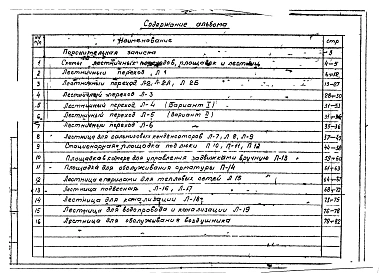 Содержание альбома
№№ п/п Наименование стр
Пояснительная записка 3
1 Схемы лестничных переходов, площадок и лестниц 4-5
2 Лестничный переход Л 1
3 Лестничный переход Л2, Л-2А, Л 2Б
4 Лестничный переход Л-3
5 Лестничный переход Л-4 (Вариант I) 31-
6 Лестничный переход Л-5 (Вариант II)
7 Лестничный переход Л-6 35-
8 Лестница для сальниковых компенсаторов Л-7, Л 8, Л-9
9 Стационарная площадка под люки Л 10, Л-11, Л 12
10 Площадка в камере для управления задвижками вручную Л-13
11 Площадка для обслуживания арматуры Л-14 61-63
12 Лестница с перилами для тепловых сетей Л 15
13 Лестница подвесная Л-16, Л-17
14 Лестница для канализации Л-18 73-75
15 Лестница для водопровода и канализации Л-19 76-78
16 Лестница для обслуживания воздушника 79-82